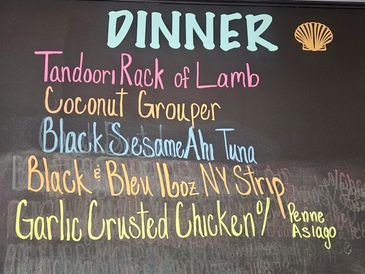 DINNER
Tandoori Rack of Lamb
Coconut Grouper
Black Sesame Ahi Tuna
Black & Bleu 16oz. NY Strip
Garlic Crusted Chicken w/ Penne
Asiago